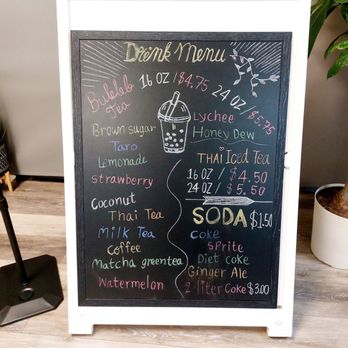 Drink Menu
Bubble Tea 16 oz / $4.75 24 oz / $5.75
Brown sugar
Taro
Lemonade
Strawberry
Coconut
Thai Tea
Milk Tea
Coffee
Matcha green tea
Watermelon
Lychee
Honey Dew
THAI Iced Tea
16 oz / $4.50
24 oz / $5.50
SODA $1.50
Coke
Sprite
Diet coke
Ginger Ale
2 liter Coke $3.00